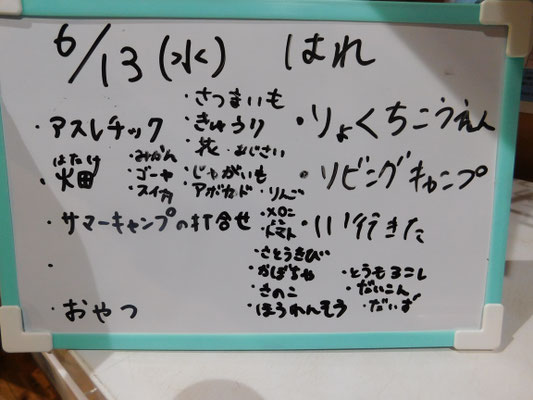 6/13(水) はれ
・さつまいも
・アスレチック ・きゅうり ・りょくちこうえん
・花 ・あじさい
はたけ
・畑 ・みかん ・じゃがいも ・リビングキャンプ
・ゴーヤ ・アボカド ・りんご
・スイカ ・メロン
・サマーキャンプの打合せ ・トマト ・いい行きた
・さとうきび
・かぼちゃ ・とうもろこし
・きのこ ・だいこん
・おやつ ・ほうれんそう ・だいず